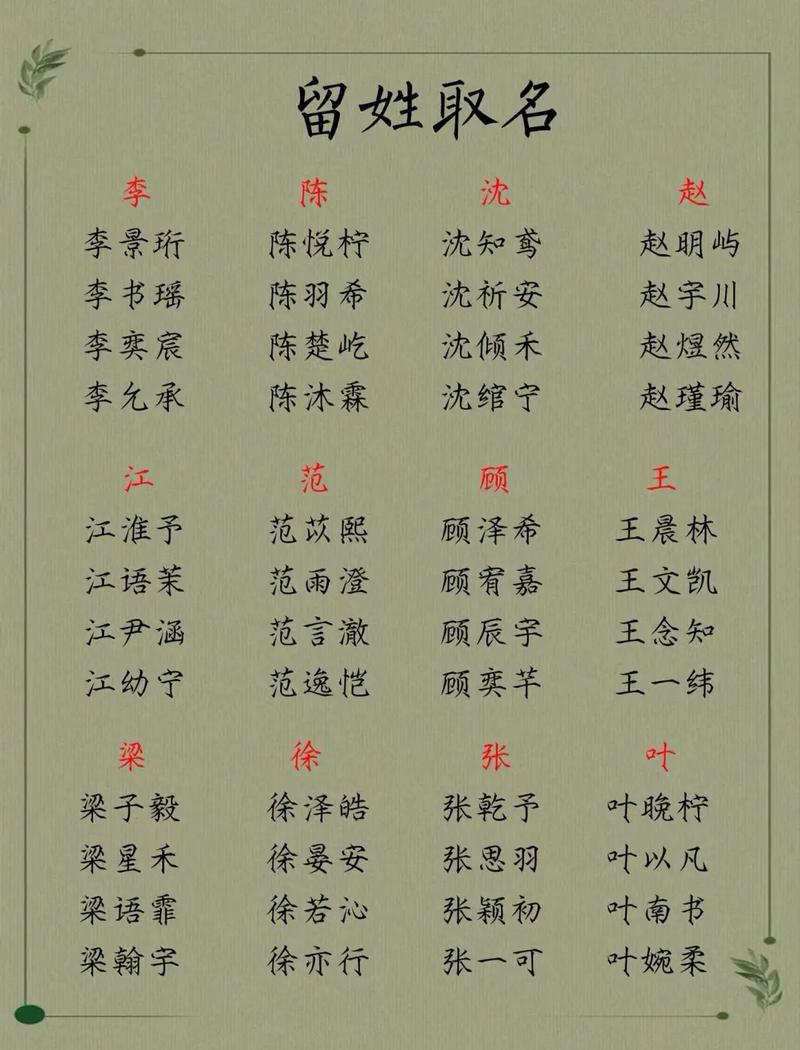 留姓取名
李 陈 沈 赵
李景珩 陈悦柠 沈知鸢 赵明屿
李书瑶 陈羽希 沈祈安 赵宇川
李奕宸 陈楚屹 沈倾禾 赵煜然
李允承 陈沐霖 沈绾宁 赵瑾瑜
江 范 顾 王
江淮予 范苡熙 顾泽希 王晨林
江语茉 范雨澄 顾宥嘉 王文凯
江尹涵 范言澈 顾辰宇 王念知
江幼宁 范逸恺 顾奕芊 王一纬
梁 徐 张 叶
梁子毅 徐泽皓 张乾予 叶晚柠
梁星禾 徐晏安 张思羽 叶以凡
梁语霏 徐若沁 张颖初 叶南书
梁翰宇 徐亦行 张一可 叶婉柔